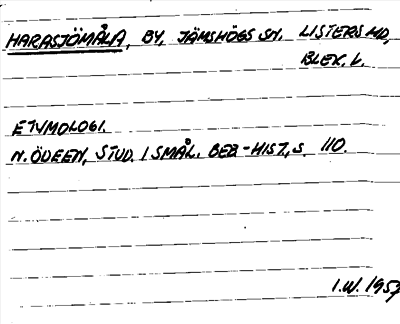 HARASJÖMÅLA, BY, JÄMSHÖGS SN. LISTERS HD,
BLEK. L.
ETYMOLOGI.
N. ÖDEEN, STUD. I SMÅL. BEB-HIST, S. 110.
I.W. 1957